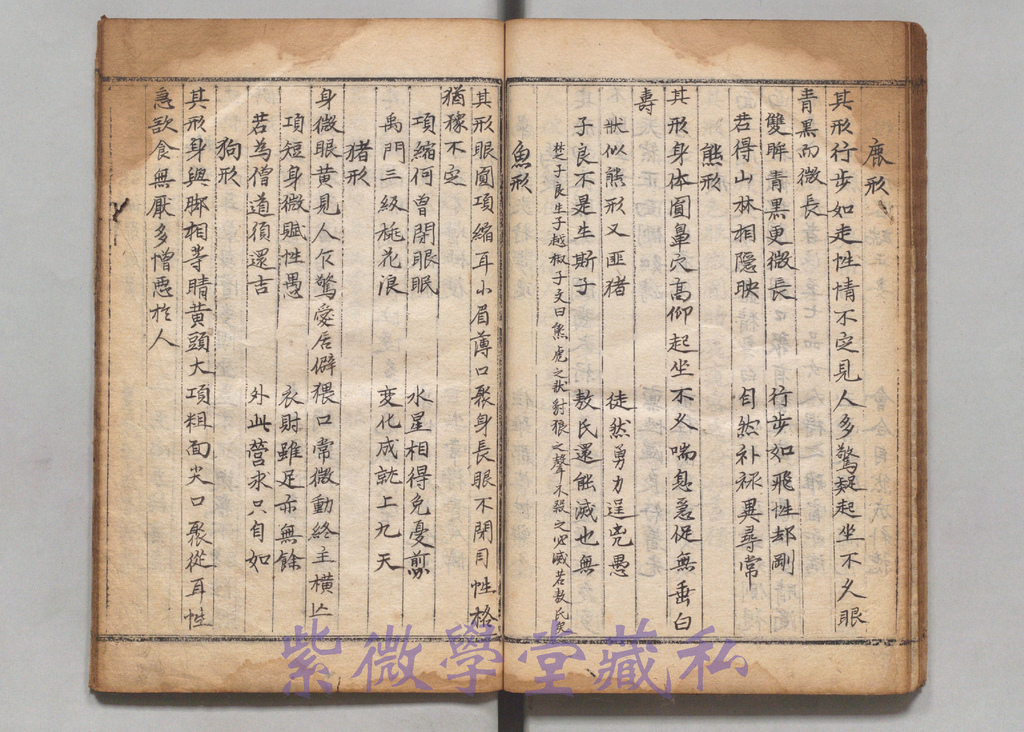 鹿形
其形行步如走性情不定見人多驚疑起坐不久眼
青黑而微長
雙眸青黑更微長 行步如飛性却剛
若得山林相隱映 自然补祿異尋常
熊形
其形身体圓鼻穴高仰起坐不久喘息急促無垂白
壽
狀似熊形又匪猪 徒然勇力逞兇愚
子良不是生斯子 敖氏還能滅也無
楚子良生子越椒子文曰熊虎之狀豺狼之聲不殺之必滅若敖氏矣
魚形
其形眼圓項縮耳小眉薄口聚身長眼不閉同性格
猶豫不定
項縮何曾閉眼眠 水星相得免憂煎
禹門三級桃花浪 變化成就上九天
猪形
身微眼黃見人仄驚愛居僻猥口常微動終主橫亡
項短身微賦性愚 衣財雖足亦無餘
若為僧道須還吉 外此營求只自如
狗形
其形身與脚相等睛黃頭大項粗面尖口聚從耳性
急欲食無厭多憎惡於人
紫微學堂藏私